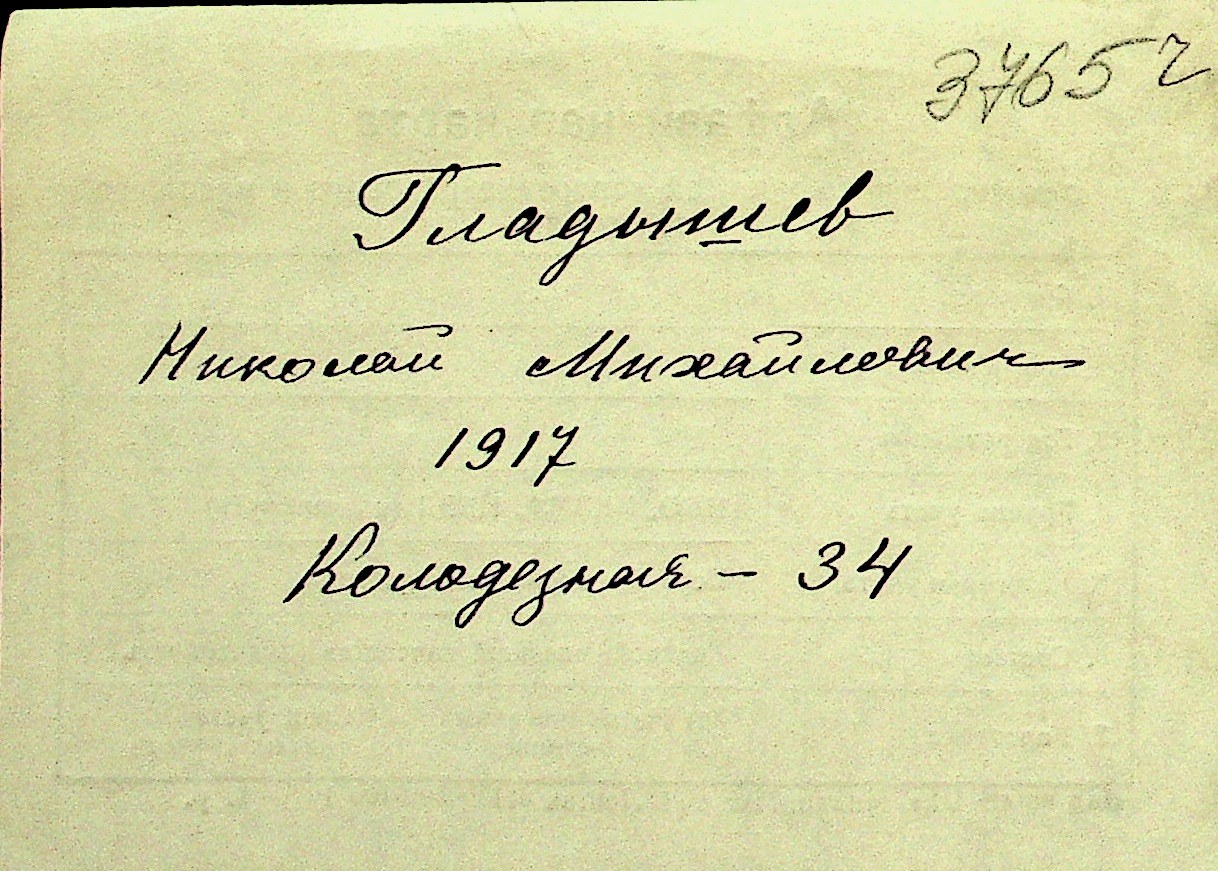 3765 г
Гладышев
Николай Михайлович
1917
Колодезная - 34